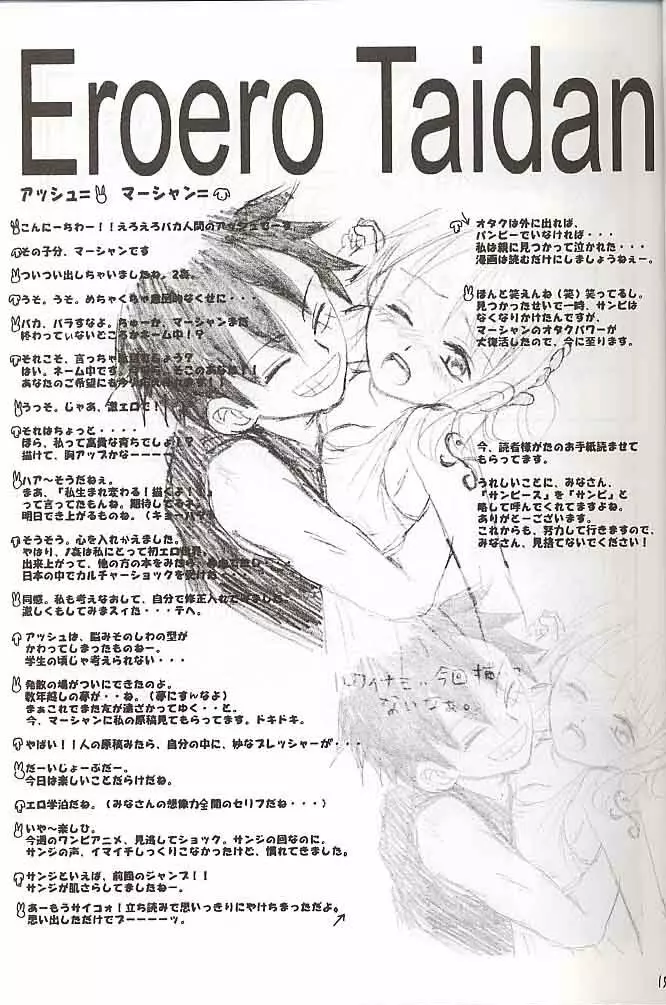 Eroero Taidan
アッシュ= マーシャン=
こんにーちわー！！えろえろバカ人間のアッシュでーす。
その子分、マーシャンです
ついつい出しちゃいましたね。2冊。
うそ。うそ。めちゃくちゃ意図的なくせに・・・
バカ、バラすなよ。ちゅーか、マーシャンまだ
終わってぃないどころかネーム中！？
それこそ、言っちゃ
はい。ネーム中です。 そこのあなた！！
あなたのご希望にも
うっそ。じゃあ、激エロで！
それはちょっと・・・・
ほら、私って高貴な育ちでしょ！？
描けて、胸アップかなーーーー
ハア〜そうだねぇ。
まあ、「私生まれ変わる！描くよ！！」
って言ってたもんね。期待してるネ。
明日でき上がるものね。（キョーハク）
そうそう。心を入れかえました。
やはり、
出来上がって、他の方の本をみたら、
日本の中でカルチャーショックを受けた・・・
同感。私も考えなおして、自分で修正入れて
激しくもしてみまスィた・・・テヘ。
アッシュは、脳みそのしわの型が
かわってしまったものねー。
学生の頃じゃ考えられない・・・
発散の場がついにできたのよ。
数年越しの夢が・・ね。（夢にすんなよ）
まぁこれでまた友が遠ざかってゆく・・と。
今、マーシャンに私の原稿見てもらってます。ドキドキ。
やばい！！人の原稿みたら、自分の中に、妙なプレッシャーが・・・
だーいじょーぶだー。
今日は楽しいことだらけだね。
エロ学泊だね。（みなさんの想像力全開のセリフだね・・・）
いや〜楽しひ。
今週のワンピアニメ、見逃してショック。サンジの回なのに。
サンジの声、イマイチしっくりこなかったけど、慣れてきました。
サンジといえば、前回のジャンプ！！
サンジが肌さらしてましたねー。
あーもうサイコォ！立ち読みで思いっきりにやけちまっただよ。
思い出しただけでブーーーーッ。
オタクは外に出れば、
パンピーでいなければ・・・
私は親に見つかって泣かれた・・・
漫画は読むだけにしましょうねぇー。
ほんと笑えんね（笑）笑ってるし。
見つかったせいで一時、サンピは
なくなりかけたんですが、
マーシャンのオタクパワーが
大復活したので、今に至ります。
今、読者様がたのお手紙読ませて
もらってます。
うれしいことに、みなさん、
「サンピース」を「サンピ」と
略して呼んでくれてますよね。
ありがとーございます。
これからも、努力して行きますので、
みなさん、見捨てないでください！
ルフィナミ、、今回描いて
ないなぁ。